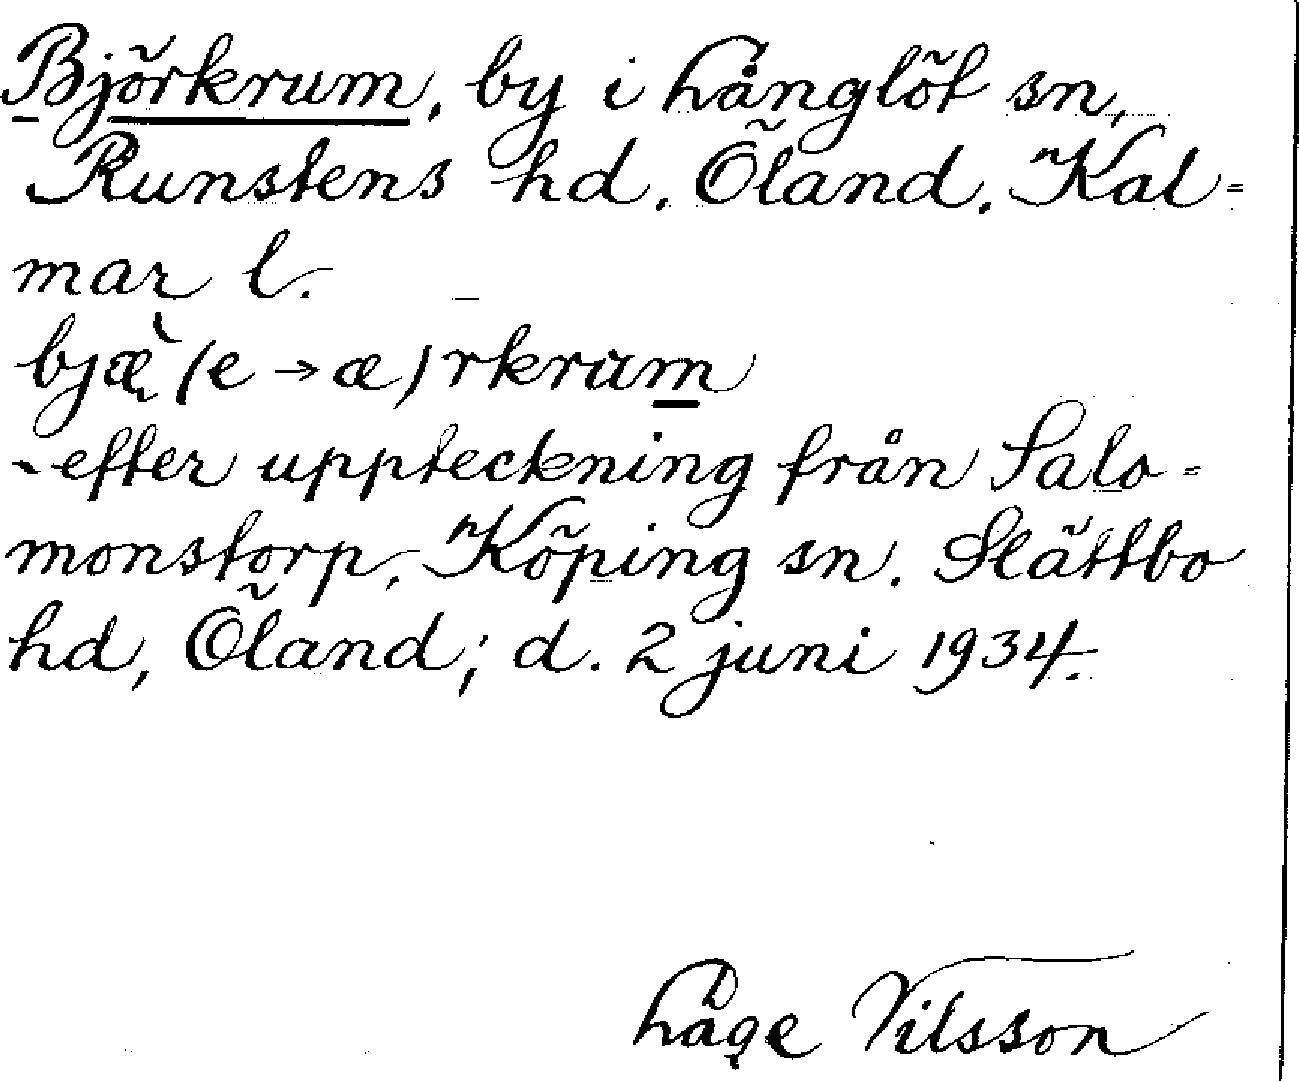 Björkrum, by i Långlöt sn,
Runstens hd. Öland. Kal-
mar l.
bjæ̀ (e → æ) rkrum
- efter uppteckning från Salo-
monstorp, Köping sn. Slättbo
hd, Öland; d. 2 juni 1934.
Låge Nilsson